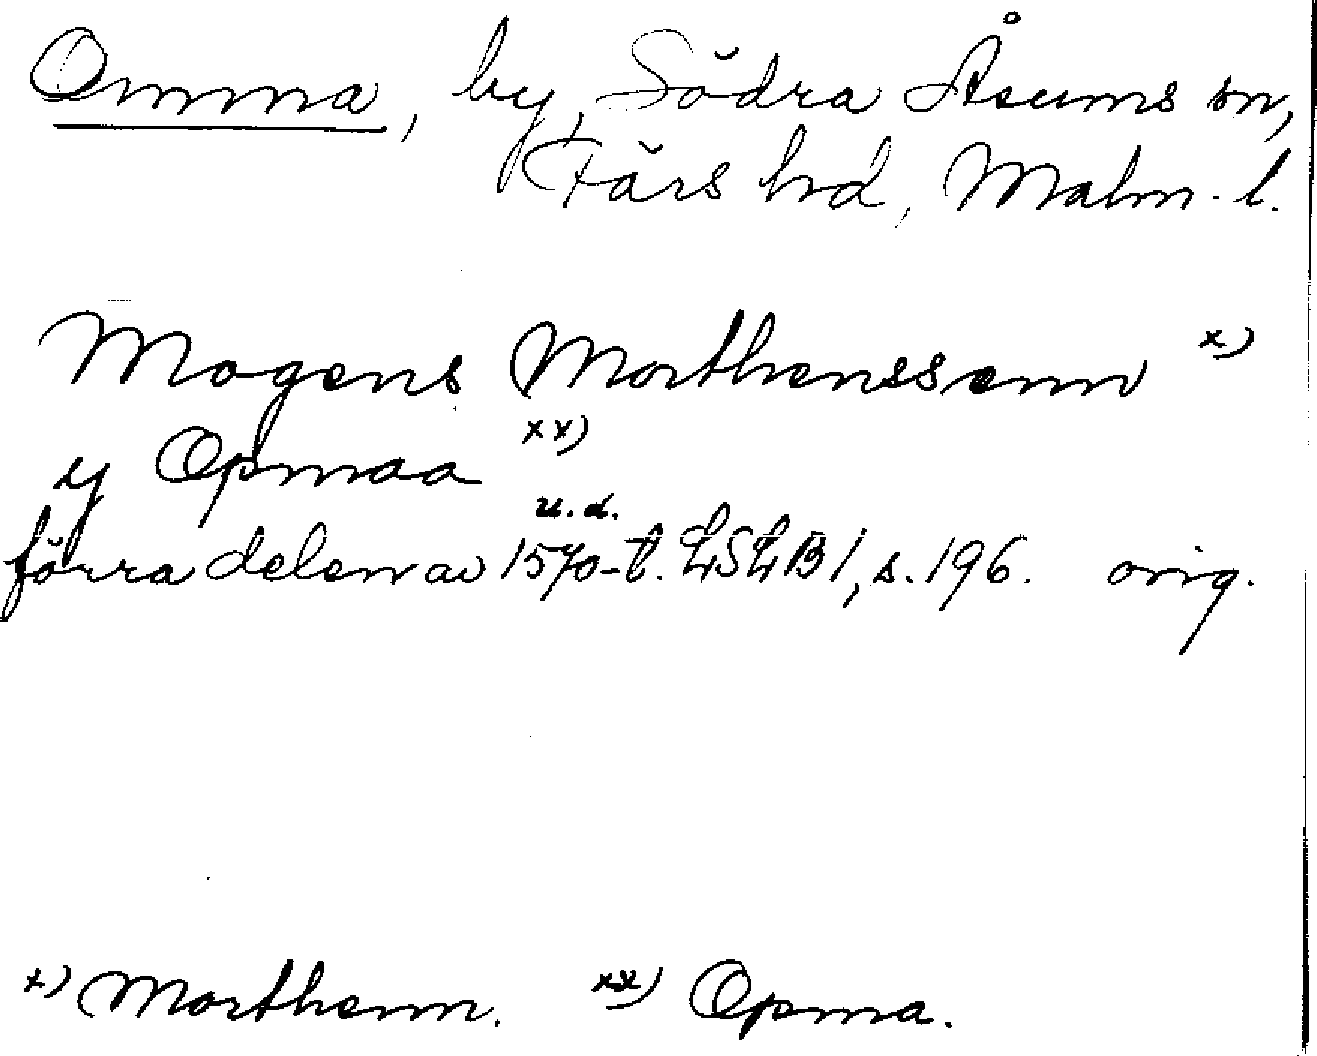 Omma, by, Södra Åsums sn,
Färs hd, Malm. l.
Mogens Morthenssenn x)
y Opmaa xx)
u. d.
förra delen av 1570-t. LSLB1, s. 196. orig.
x) Morthenn. xx) Opma.